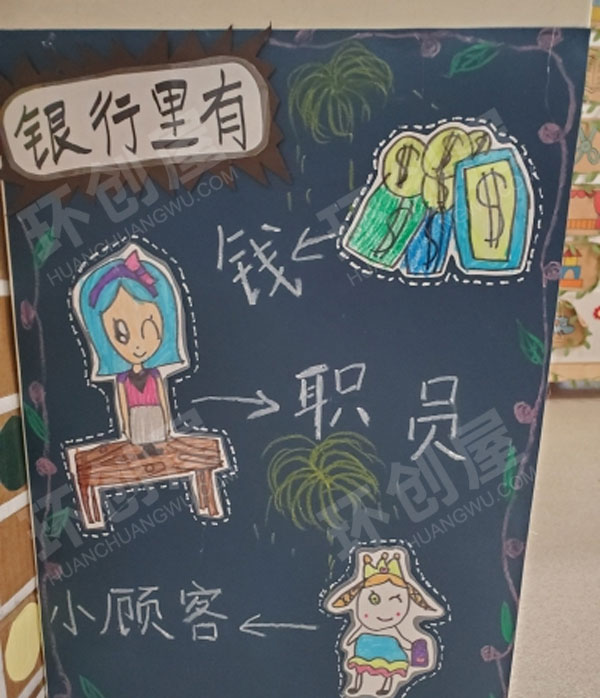 银行里有
钱
职员
小顾客
环创屋
HUANCHUANGWU.COM
环创屋
HUANCHUANGWU.COM
环创屋
HUANCHUANGWU.COM
环创屋
HUANCHUANGWU.COM